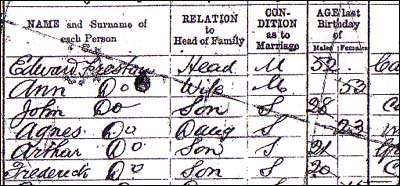 NAME and Surname of each Person RELATION to Head of Family CON-DITION as to Marriage AGE last Birthday of Males Females
Edward Preston Head M 52
Ann Do Wife M 52
John Do Son S 28
Agnes Do Daug S 23
Arthur Do Son S 21
Frederick Do Son S 20